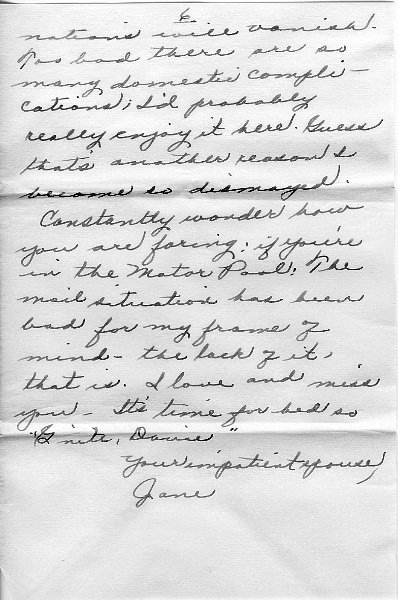 6.
nations will vanish.
Too bad there are so
many domestic compli-
cations; I'd probably
really enjoy it here. Guess
that's another reason I
become so dismayed.
Constantly wonder how
you are faring; if you're
in the Motor Pool; The
mail situation has been
bad for my frame of
mind - the lack of it,
that is. I love and miss
you - It's time for bed so
"G'nite, Davie"
Your impatient spouse,
Jane